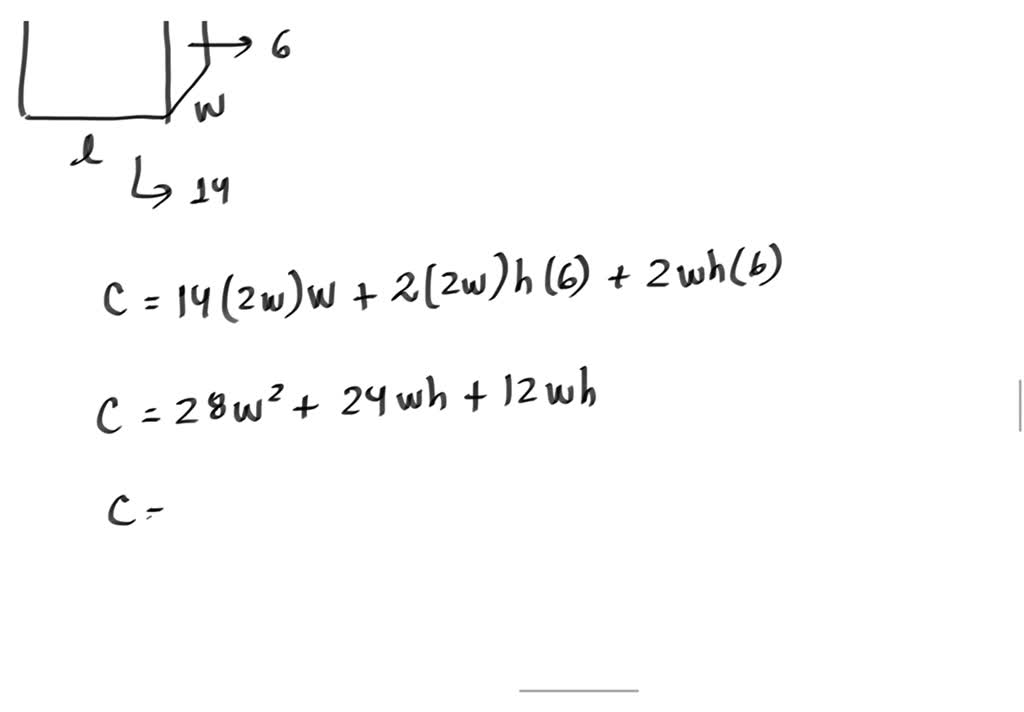 6
w
l
14
C = 14(2w)w + 2(2w)h(6) + 2wh(6)
C = 28w² + 24wh + 12wh
C =